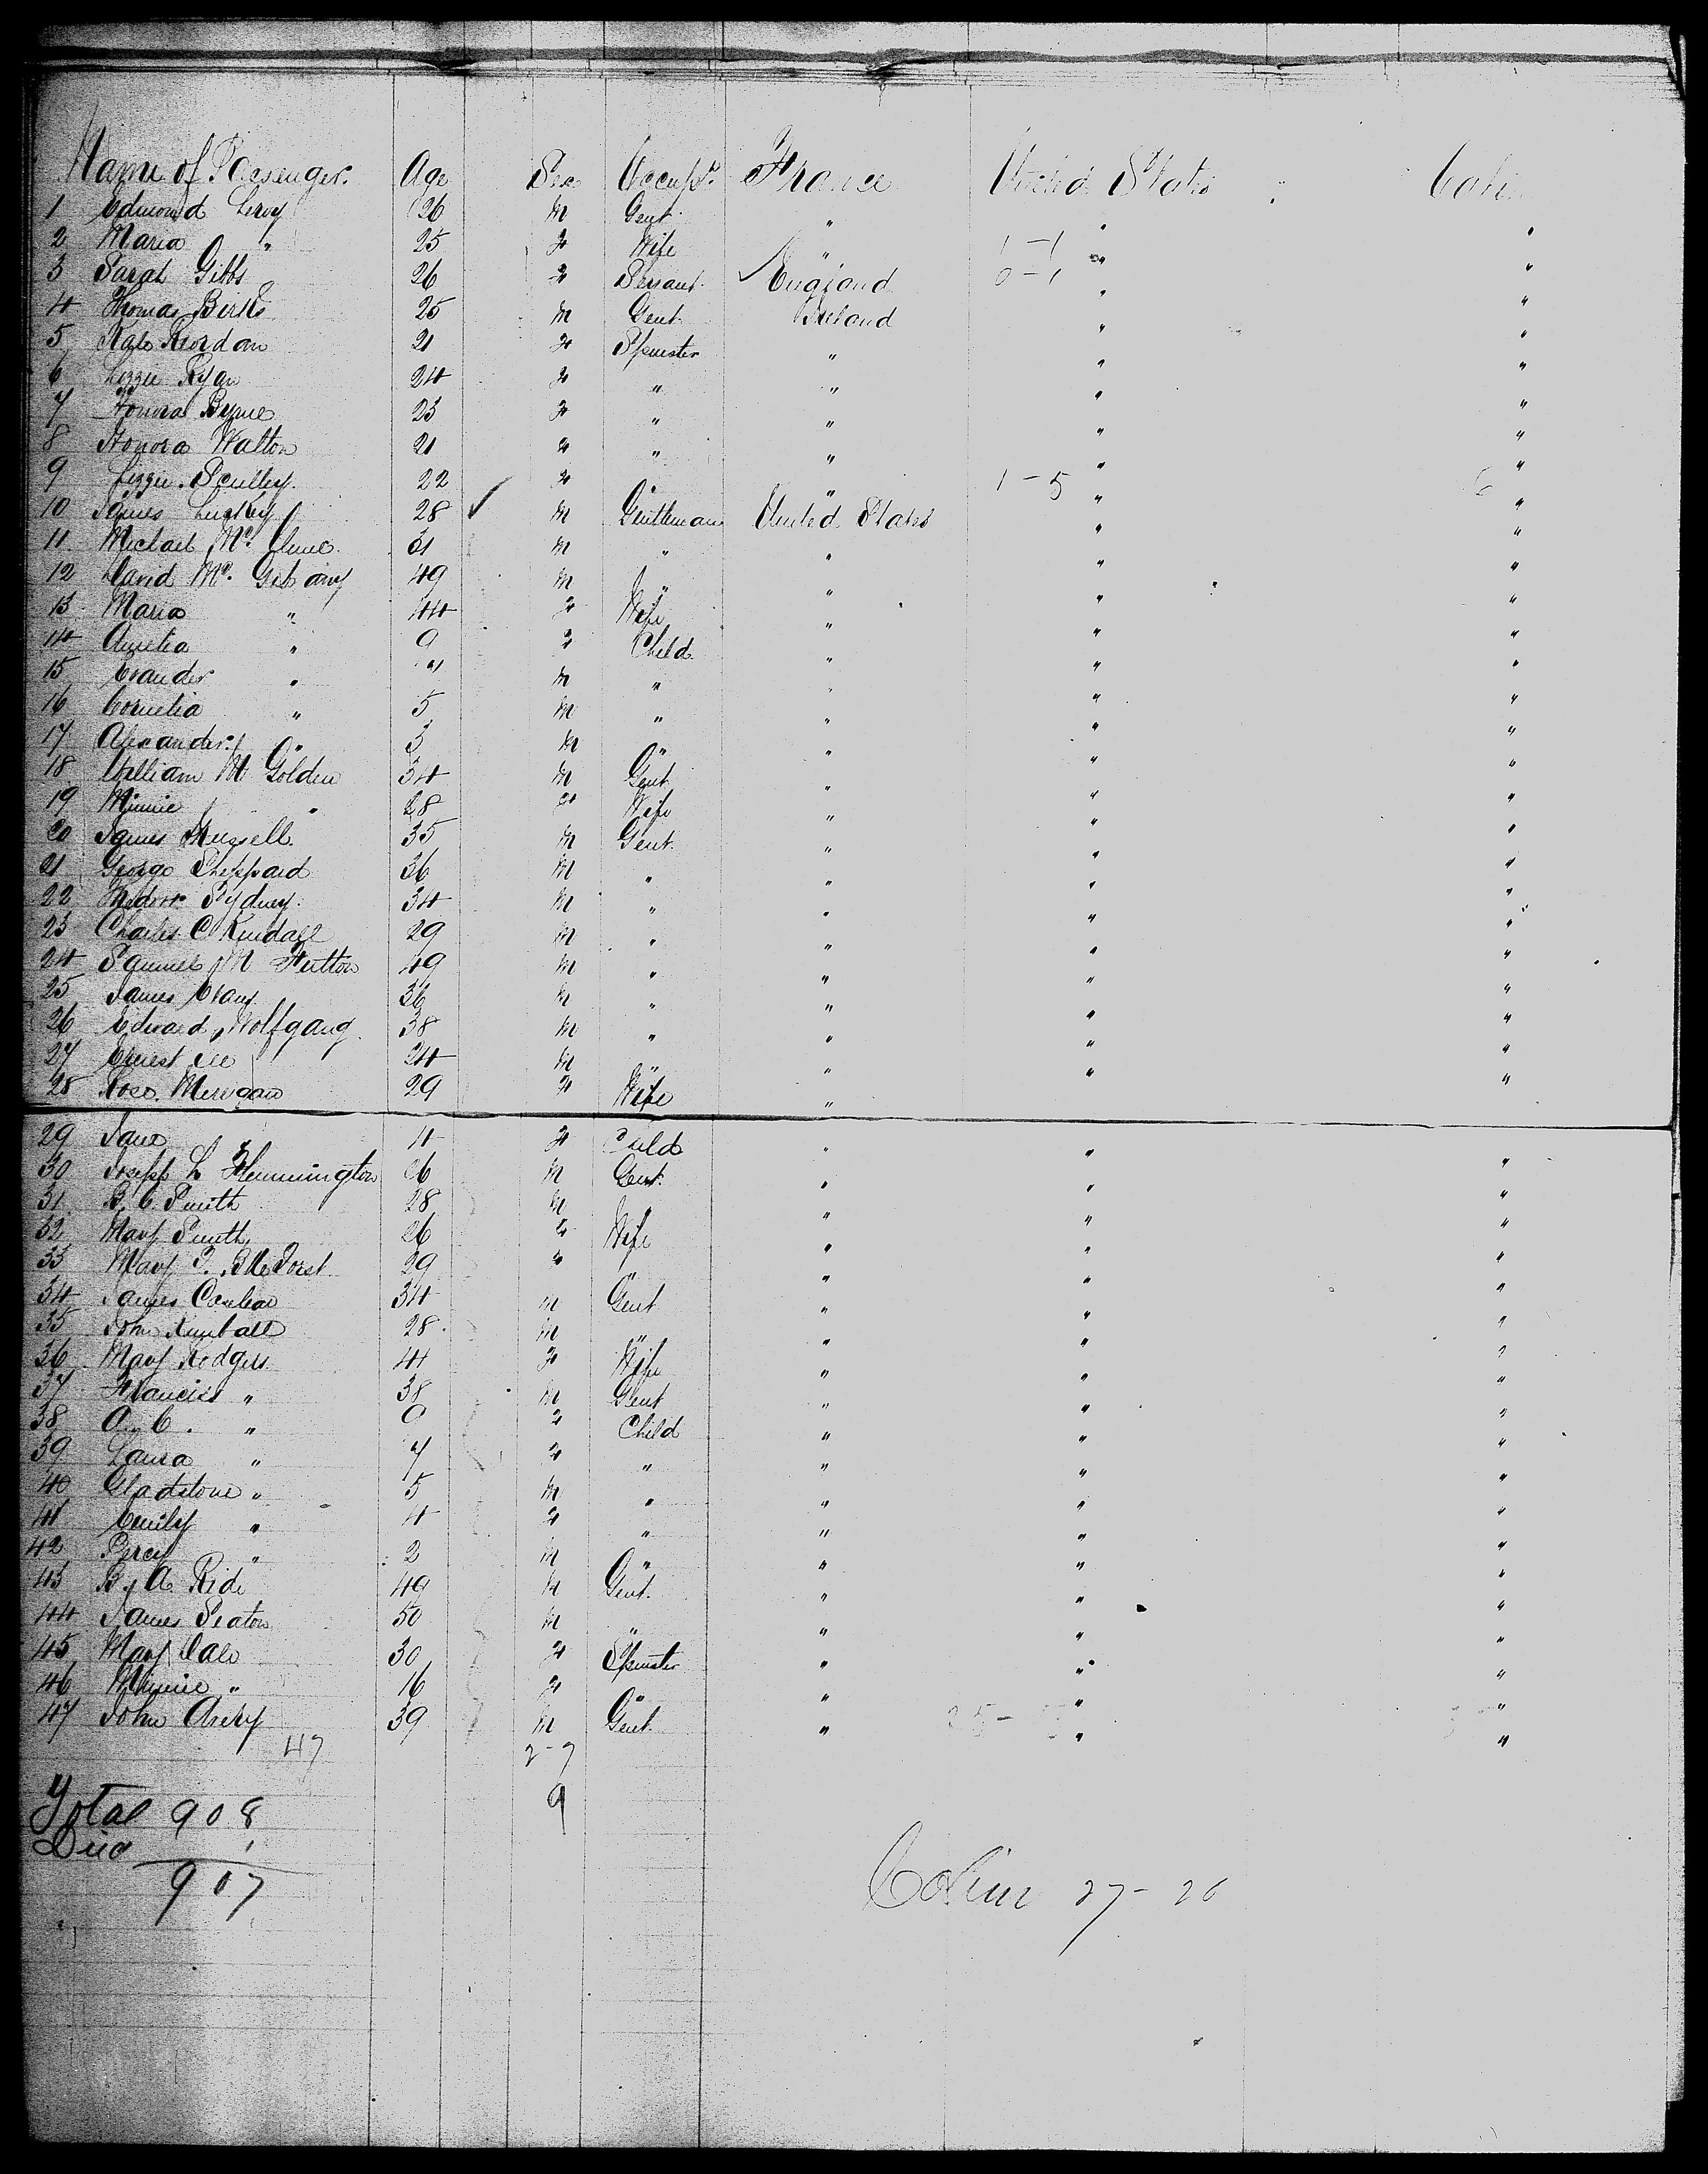 Name of Passenger. Age Sex Occupt. France United States Cabin
1 Edmond Leroy 26 M Gent. " "
2 Maria " 25 F Wife " 1-1 " "
3 Sarah Gibbs 26 F Servant. England 0-1 " "
4 Thomas Birks 25 M Gent. Ireland " "
5 Kate Riordan 21 F Spinster " " "
6 Lizzie Ryan 24 F " " " "
7 Honora Byrne 23 F " " " "
8 Honora Walton 21 F " " " "
9 Lizzie Sculley. 22 F " " 1-5 " 6 "
10 James 28 ✓ M Gentleman United States " "
11 Michael Mc. 31 M " " " "
12 David Mc. 49 M " " " "
13 Maria " 44 F Wife " " "
14 Amelia " 9 F Child. " " "
15 Evander " M " " " "
16 Cornelia " 5 M " " " "
17 Alexander " 3 M " " " "
18 William M Golden 34 M Gent " " "
19 Minnie " 28 F Wife " " "
20 James Russell 35 M Gent. " " "
21 George Sheppard 36 M " " " "
22 Sydney. 34 M " " " "
23 Charles C Kendall 29 M " " " "
24 Samuel M Hutton 49 M " " " "
25 James Evans 36 M " " " "
26 Edward Wolfgang 38 M " " " "
27 Ernest 24 M " " " "
28 29 F Wife " " "
29 Jane 4 F Child " " "
30 Joseph L Flemmington 26 M Gent. " " "
31 B. C. Smith 28 M " " " "
32 Mary Smith 26 F Wife " " "
33 Mary 29 F " " " "
34 James 34 M Gent " " "
35 John Kimball 28 M " " " "
36 Mary Rodgers 41 F Wife " " "
37 Francis " 38 M Gent " " "
38 " 9 F Child " " "
39 Laura " 7 F " " " "
40 Gladstone " 5 M " " " "
41 Emily " 4 F " " " "
42 Percy " 2 M " " " "
43 B. A. Ride 49 M Gent. " " "
44 James Seaton 50 M " " " "
45 Mary Dale 30 F Spinster " " "
46 Minnie " 16 F " " " "
47 John Avery 39 M Gent. " " "
47 2-7
9
Total 908
Died 1
907
Cabin 27-20